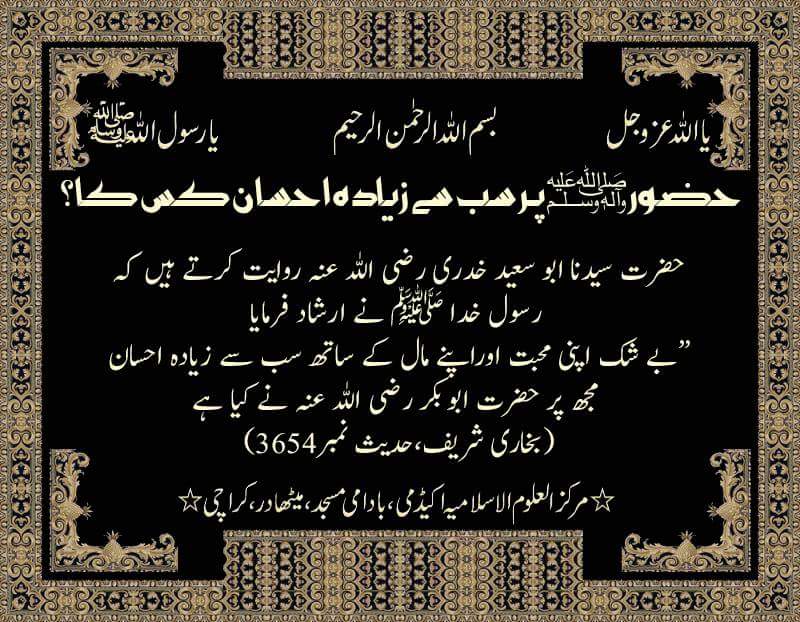 یااللہ عزوجل بسم اللہ الرحمٰن الرحیم یارسول اللہ ﷺ
حضور ﷺ پر سب سے زیادہ احسان کس کا؟
حضرت سیدنا ابو سعید خدری رضی اللہ عنہ روایت کرتے ہیں کہ
رسول خدا ﷺ نے ارشاد فرمایا
”بے شک اپنی محبت اوراپنے مال کے ساتھ سب سے زیادہ احسان
مجھ پر حضرت ابو بکر رضی اللہ عنہ نے کیا ہے
(بخاری شریف،حدیث نمبر3654)
☆مرکز العلوم الاسلامیہ اکیڈمی،بادامی مسجد،میٹھادر،کراچی☆